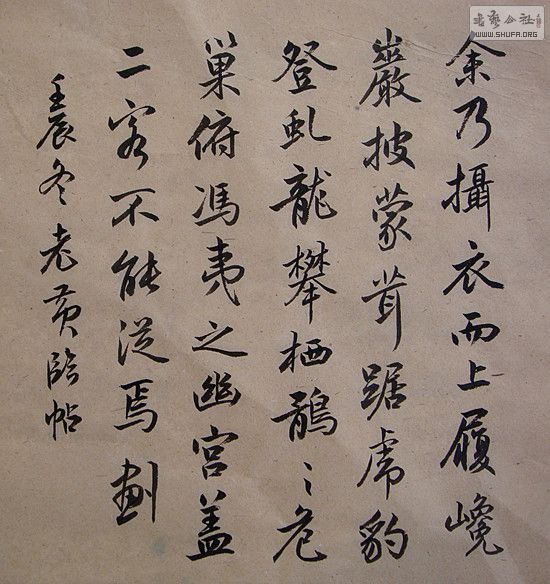 余乃攝衣而上履巉
巖披蒙茸踞虎豹
登虬龍攀栖鶻之危
巢俯馮夷之幽宮蓋
二客不能從焉劃
壬辰冬老黄臨帖
书艺公社
WWW.SHUFA.ORG